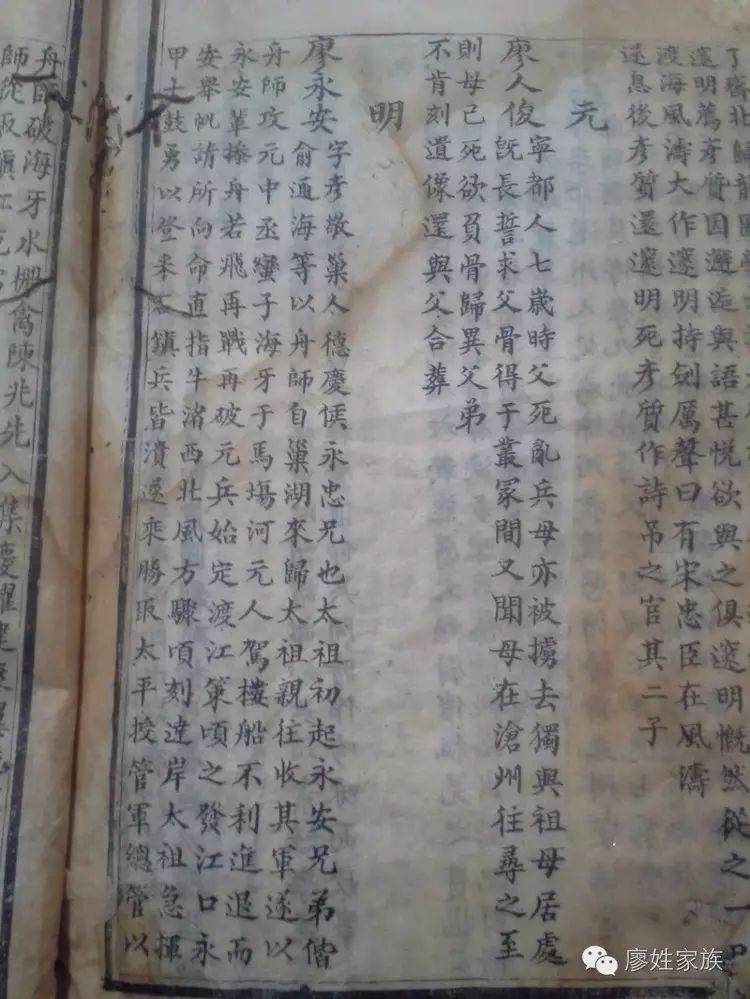 了齋北歸龍圖
邃明薦彥質因邂逅與語甚悅欲與之俱邃明慨然從之一日
渡海風濤大作邃明持劍厲聲曰有宋忠臣在風濤
遂息後彥質還邃明死彥質作詩吊之官其二子
元
廖人俊
寧都人七歲時父死亂兵母亦被擄去獨與祖母居處
旣長誓求父骨得于叢冢間又聞母在滄州往尋之至
則母已死欲負骨歸異父弟
不肯刻遺像還與父合葬
明
廖永安
字彥敬巢人德慶侯永忠兄也太祖初起永安兄弟偕
俞通海等以舟師自巢湖來歸太祖親往收其軍遂以
舟師攻元中丞蠻子海牙于馬塲河元人駕樓船不利進退而
永安輩操舟若飛再戰再破元兵始定渡江策頃之發江口永
安舉帆請所向命直指牛渚西北風方驟頃刻達岸太祖急揮
甲士鼓勇以登釆石鎮兵皆潰遂乘勝取太平授管軍總管以
舟師破海牙水柵禽陳兆先入集慶擢建康翼統
師從取鎮江克常
廖姓家族